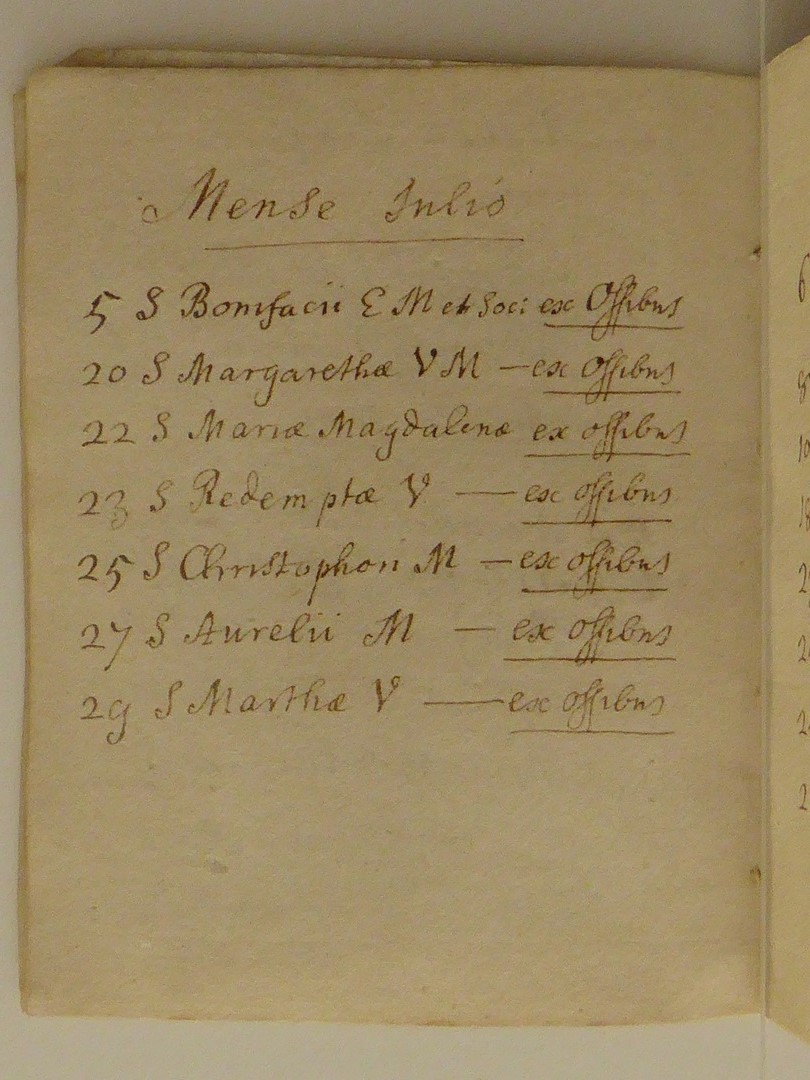 Mense Iulio
5 S Bonifacii E M et Soc: ex Ossibus
20 S Margarethæ V M — ex Ossibus
22 S Mariæ Magdalenæ ex ossibus
23 S Redemptæ V — ex ossibus
25 S Christophori M — ex ossibus
27 S Aurelii M — ex ossibus
29 S Marthæ V — ex ossibus